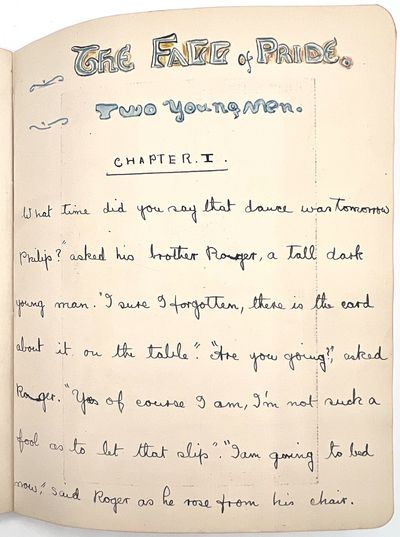 THE FALL of PRIDE.
Two Young Men.
CHAPTER. I.
What time did you say that dance was tomorrow
Philip?" asked his brother Roger, a tall dark
young man. "I sure I forgotten, there is the card
about it on the table". "Are you going?", asked
Roger. "Yes of course I am, I'm not such a
fool as to let that slip". "I am going to bed
now," said Roger as he rose from his chair.